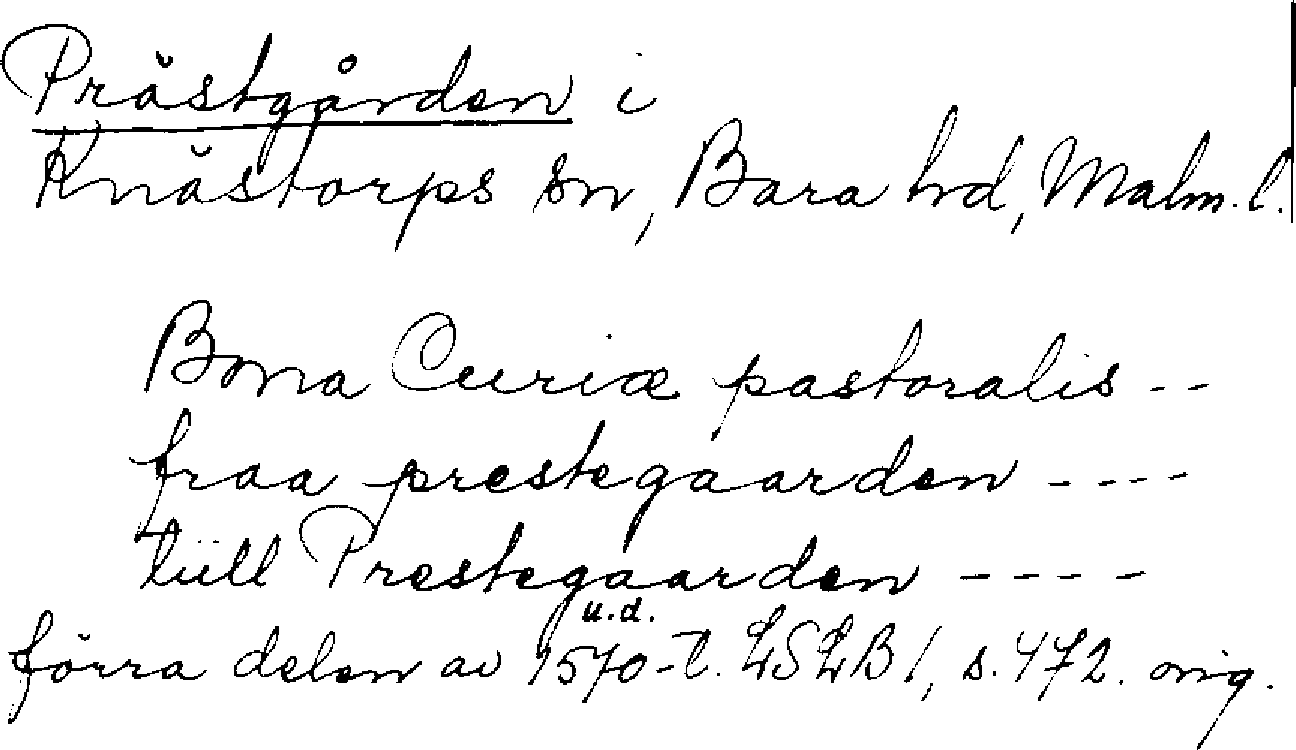 Prästgården i
Knästorps sn, Bara hd, Malm. l.
Bona Curiæ pastoralis --
fraa prestegaarden ----
tüll Prestegaarden ----
u.d.
förra delen av 1570-t. LSLB 1, s. 472. orig.